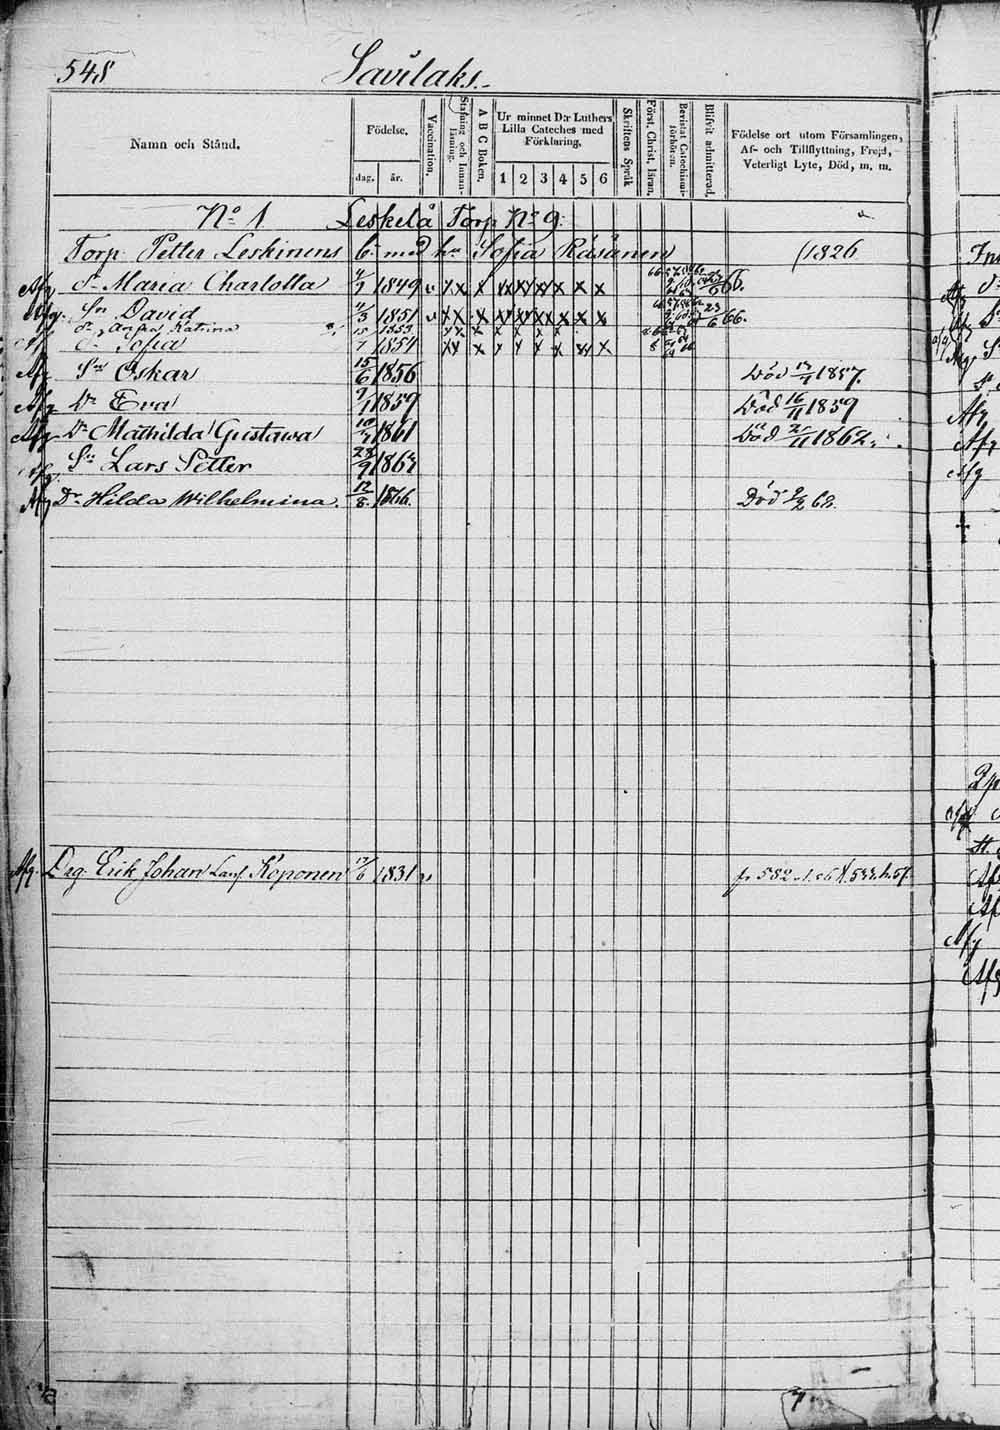 548 Savilaks.
Namn och Stånd.
Födelse.
dag. år.
Vaccination.
Stafning och Innan-läsning.
A B C Boken.
Ur minnet D:r Luthers
Lilla Cateches med
Förklaring.
1 2 3 4 5 6
Skriftens Språk
Först. Christ. läran.
Bevistat Catechismi-förhören.
Blifvit admitterad.
Födelse ort utom Församlingen,
Af- och Tillflyttning, Frejd,
Veterligt Lyte, Död, m. m.
No 1 Leskelä Torp No 9:
Torp. Petter Leskinens b. med hu Sofia Räsänen (1826
Afg dr Maria Charlotta 4/7 1849 v x x x x x x x x x 66.
Afg. Sn David 4/3 1851 v x x x x x x x x x 23/6 66.
dr Anna Katrina 15 1853 x x x x x x x
dr Sofia 1 1854 x x x x x x x x x
Afg Sn Oskar 15/6 1856 Död 1857.
Afg Dr Eva 9/1 1859 Död 16/11 1859
Afg Dr Mathilda Gustawa 10/7 1861 Död 1862
Afg Sn Lars Petter 24/9 1863
Afg Dr Hilda Wilhelmina. 12/8. 1866. Död 9/2 68.
Afg. Drg. Erik Johan Lauf Koponen 17/6 1831 v fr 582